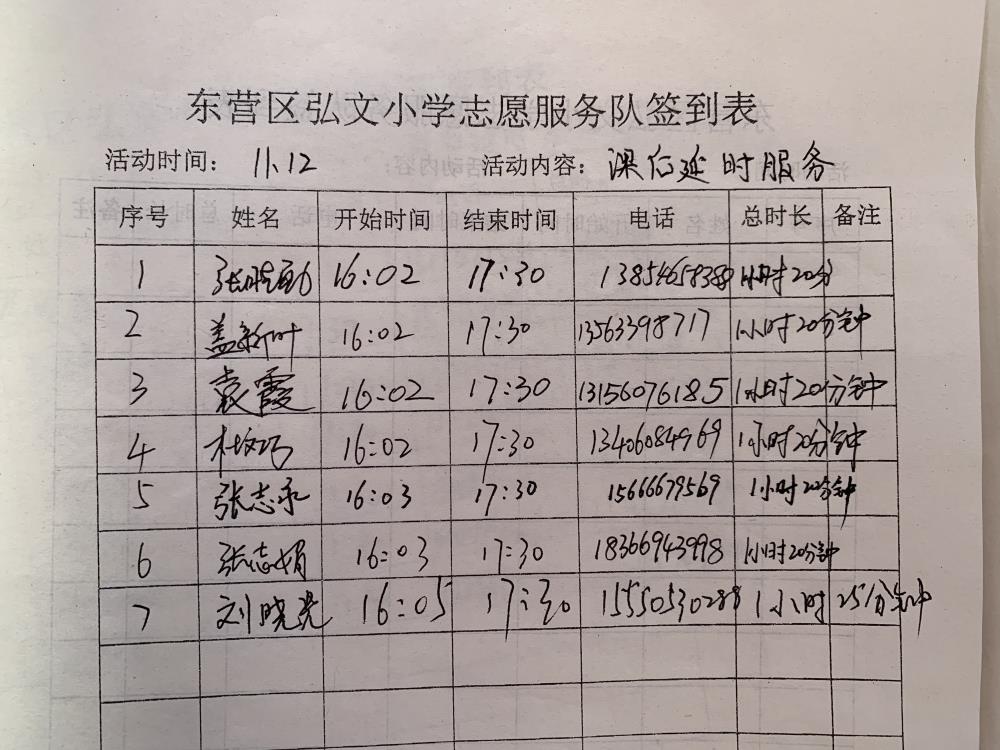 东营区弘文小学志愿服务队签到表
活动时间： 11.12 活动内容：课后延时服务
序号 姓名 开始时间 结束时间 电话 总时长 备注
1 16:02 17:30 1小时20分
2 盖新叶 16:02 17:30 13563398717 1小时20分钟
3 袁霞 16:02 17:30 13156076185 1小时20分钟
4 杜巧 16:02 17:30 13406084969 1小时20分钟
5 张志永 16:03 17:30 15666679569 1小时20分钟
6 张志娟 16:03 17:30 18366943998 1小时20分钟
7 刘晓光 16:05 17:30 15550530288 1小时25分钟